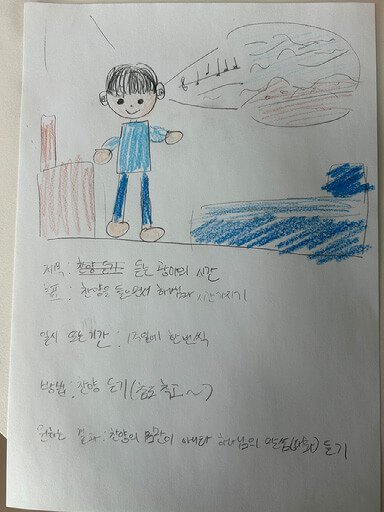 제목: 찬양 듣기 듣는 광야의 시간
목표: 찬양을 들으면서 하나님과 시간가지기
일시 또는 기간: 1주일에 한번씩
방법: 찬양 듣기(춤도 추고~)
원하는 결과: 찬양의 시간이 아니라 하나님의 말씀 듣기